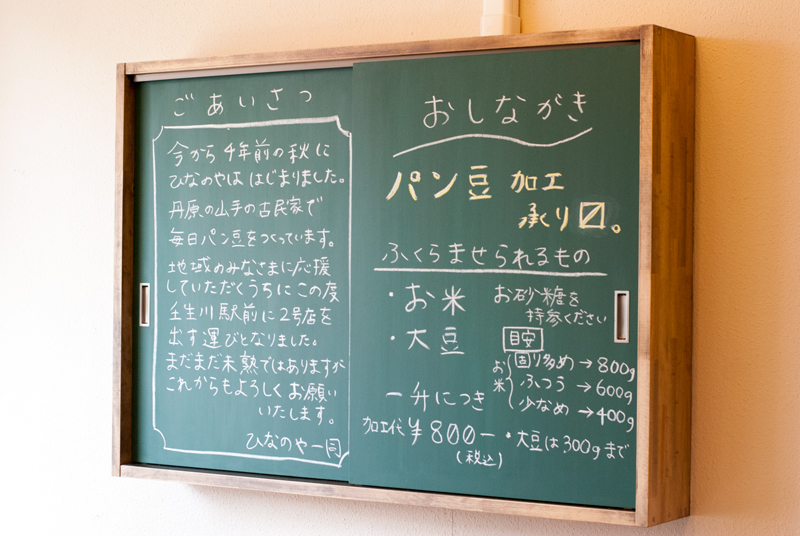 ごあいさつ
今から4年前の秋に
ひなのやは はじまりました。
丹原の山手の古民家で
毎日パン豆をつくっています。
地域のみなさまに応援
していただくうちにこの度
壬生川駅前に2号店を
出す運びとなりました。
まだまだ未熟ではありますが
これからもよろしくお願い
いたします。
ひなのや一同
おしながき
パン豆 加工
承り〼。
ふくらませられるもの
・お米
・大豆
お砂糖を
持参ください
目安
お米
固り多め→800g
ふつう→600g
少なめ→400g
一升につき
加工代¥800−
(税込)
・大豆は300gまで